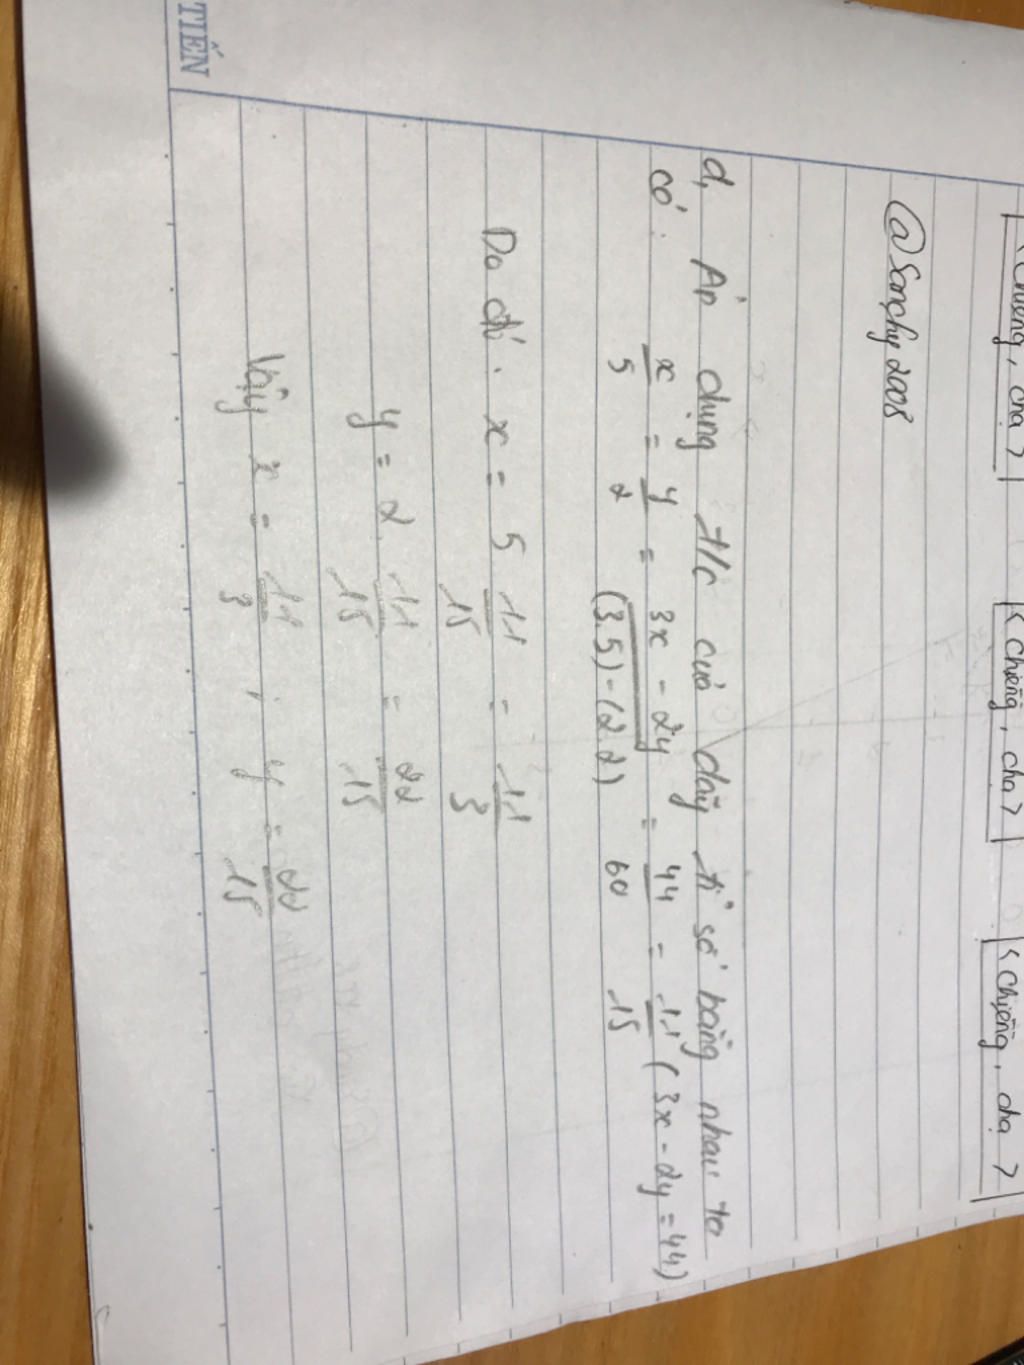 < Chiêng, cha > < Chiêng, cha > < Chiêng, cha >
@Sanchy2008
d, Áp dụng t/c của dãy tỉ số bằng nhau ta
có:
x/5 = y/2 = 3x - 2y/(3.5)-(2.2) = 44/60 = 11/15 (3x - 2y = 44)
Do đó: x = 5. 11/15 = 11/3
y = 2. 11/15 = 22/15
Vậy x = 11/3 ; y = 22/15
TIẾN